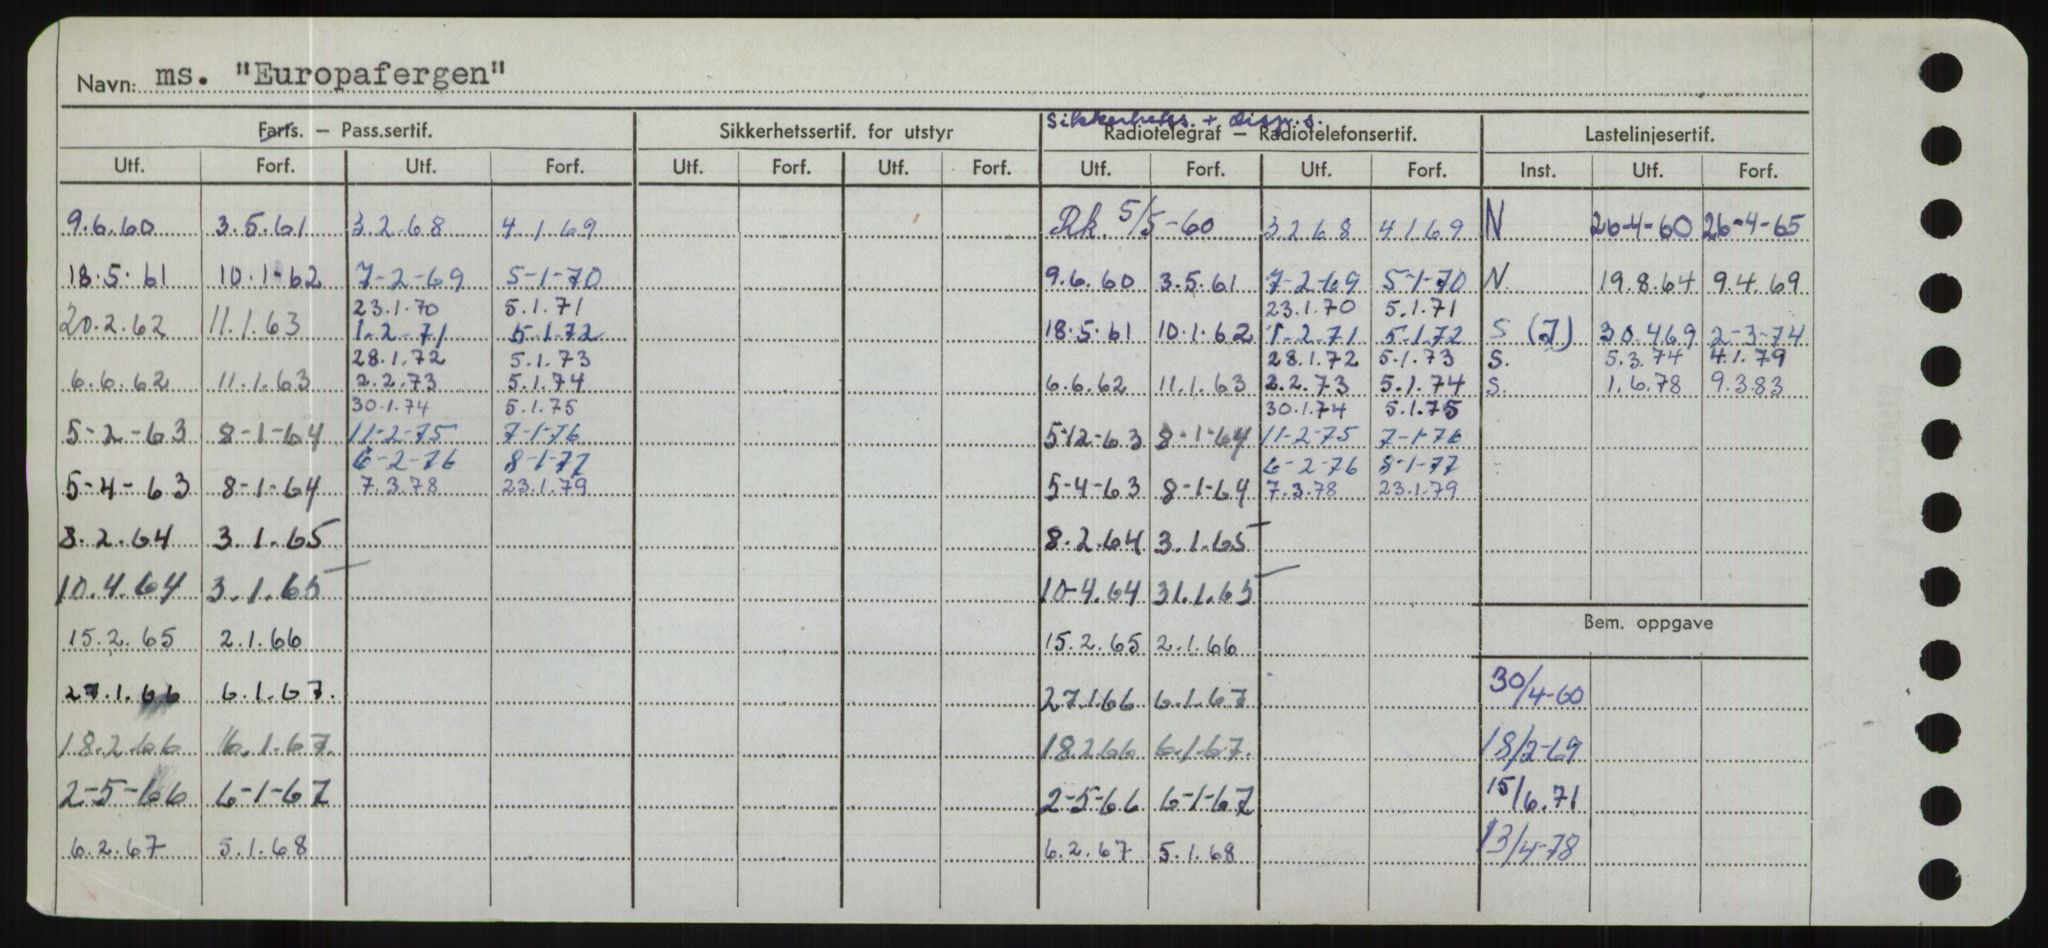 Navn: ms. "Europafergen"
Sikkerhetss. + Disp.s.
Farts. – Pass.sertif. Sikkerhetssertif. for utstyr Radiotelegraf – Radiotelefonsertif. Lastelinjesertif.
Utf. Forf. Utf. Forf. Utf. Forf. Utf. Forf. Utf. Forf. Utf. Forf. Inst. Utf. Forf.
9.6.60 3.5.61 3.2.68 4.1.69 Rk. 5/5-60 3 2 68 4 1 69 N 26-4-60 26-4-65
18.5.61 10.1-62 7-2-69 5-1-70 9.6.60 3.5.61 7-2-69 5-1-70 N 19.8.64 9.4.69
23.1.70 5.1.71 23.1.70 5.1.71
20.2.62 11.1.63 1.2-71 5.1.72 18.5.61 10.1.62 1.2.71 5.1.72 S (J) 30.469 2-3-74
28.1.72 5.1.73 28.1.72 5.1.73 S. 5.3.74 4.1.79
6.6.62 11.1.63 2.2.73 5.1.74 6.6.62 11.1.63 2.2.73 5.1.74 S. 1.6.78 9.3.83
30.1.74 5.1.75 30.1.74 5.1.75
5-2-63 8-1-64 11-2-75 7-1-76 5-12-63 8-1-64 11-2-75 7-1-76
6-2-76 8-1-77 6-2-76 8-1-77
5-4-63 8-1-64 7.3.78 23.1.79 5-4-63 8-1-64 7.3.78 23.1.79
8.2.64 3.1.65 8.2.64 3.1.65
10.4.64 3.1.65 10-4.64 31.1.65
Bem. oppgave
15.2.65 2.1.66 15.2.65 2.1.66
27.1.66 6.1.67. 27.1.66 6.1.67 30/4-60
18.2.66 6.1.67. 18.2.66 6.1.67. 18/2-69
2-5-66 6-1-67 2-5-66 6-1-67 15/6.71
6.2.67 5.1.68 6.2.67 5.1.68 13/4-78